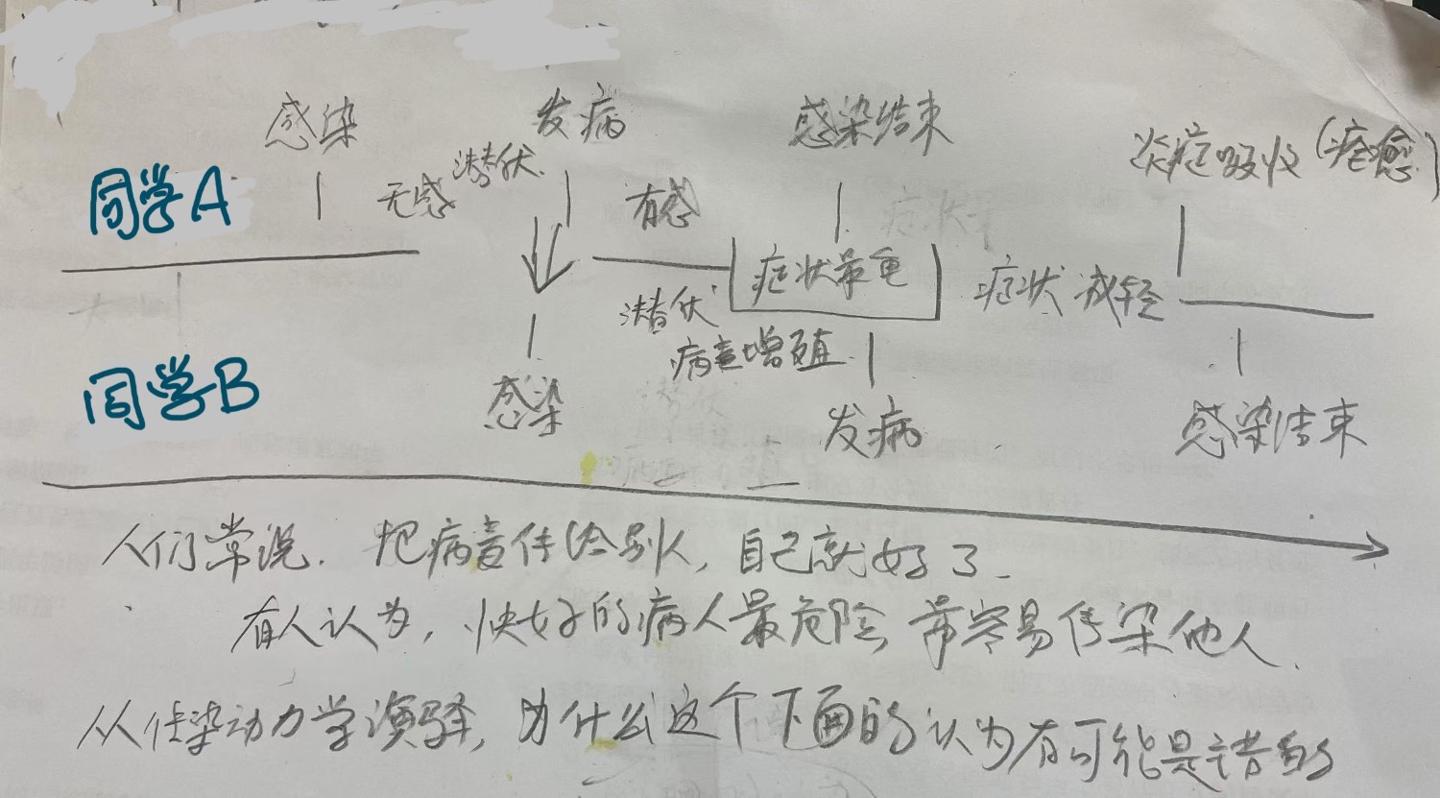 感染 发病 感染结束 炎症吸收(痊愈)
同学A 无感 潜伏 有感
症状最重 症状减轻
潜伏
病毒增殖
同学B 感染 发病 感染结束
人们常说.把病毒传给别人,自己就好了.
有人认为,快好的病人最危险,常容易传染他人.
从传染动力学演绎,为什么这个下面的认为有可能是错的